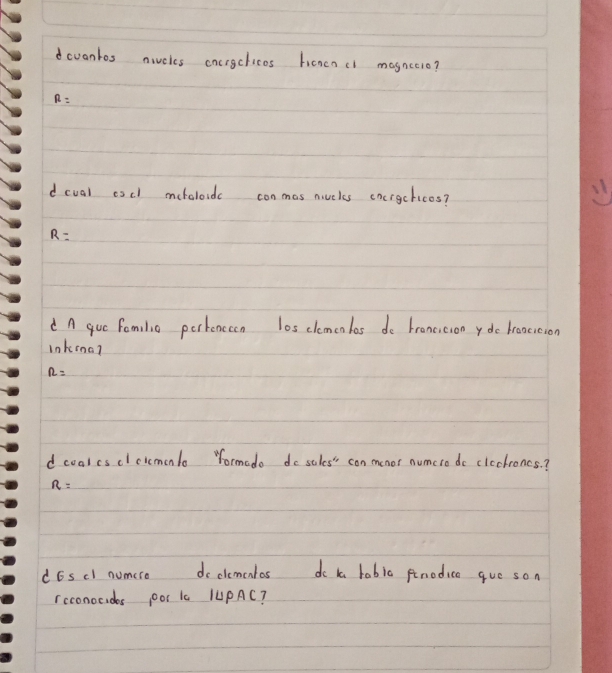 ¿cuantos niveles energeticos tienen el magnecio?
R=
¿cual es el metaloide con mas niveles energeticos?
R=
¿A que familia pertenecen los elementos de trancicion y de trancicion
interna?
R=
¿cual es el elemento "formado de sales" con menor numero de electrones.?
R=
¿Es el numero de elementos de la tabla periodica que son
reconocidos por la IUPAC?